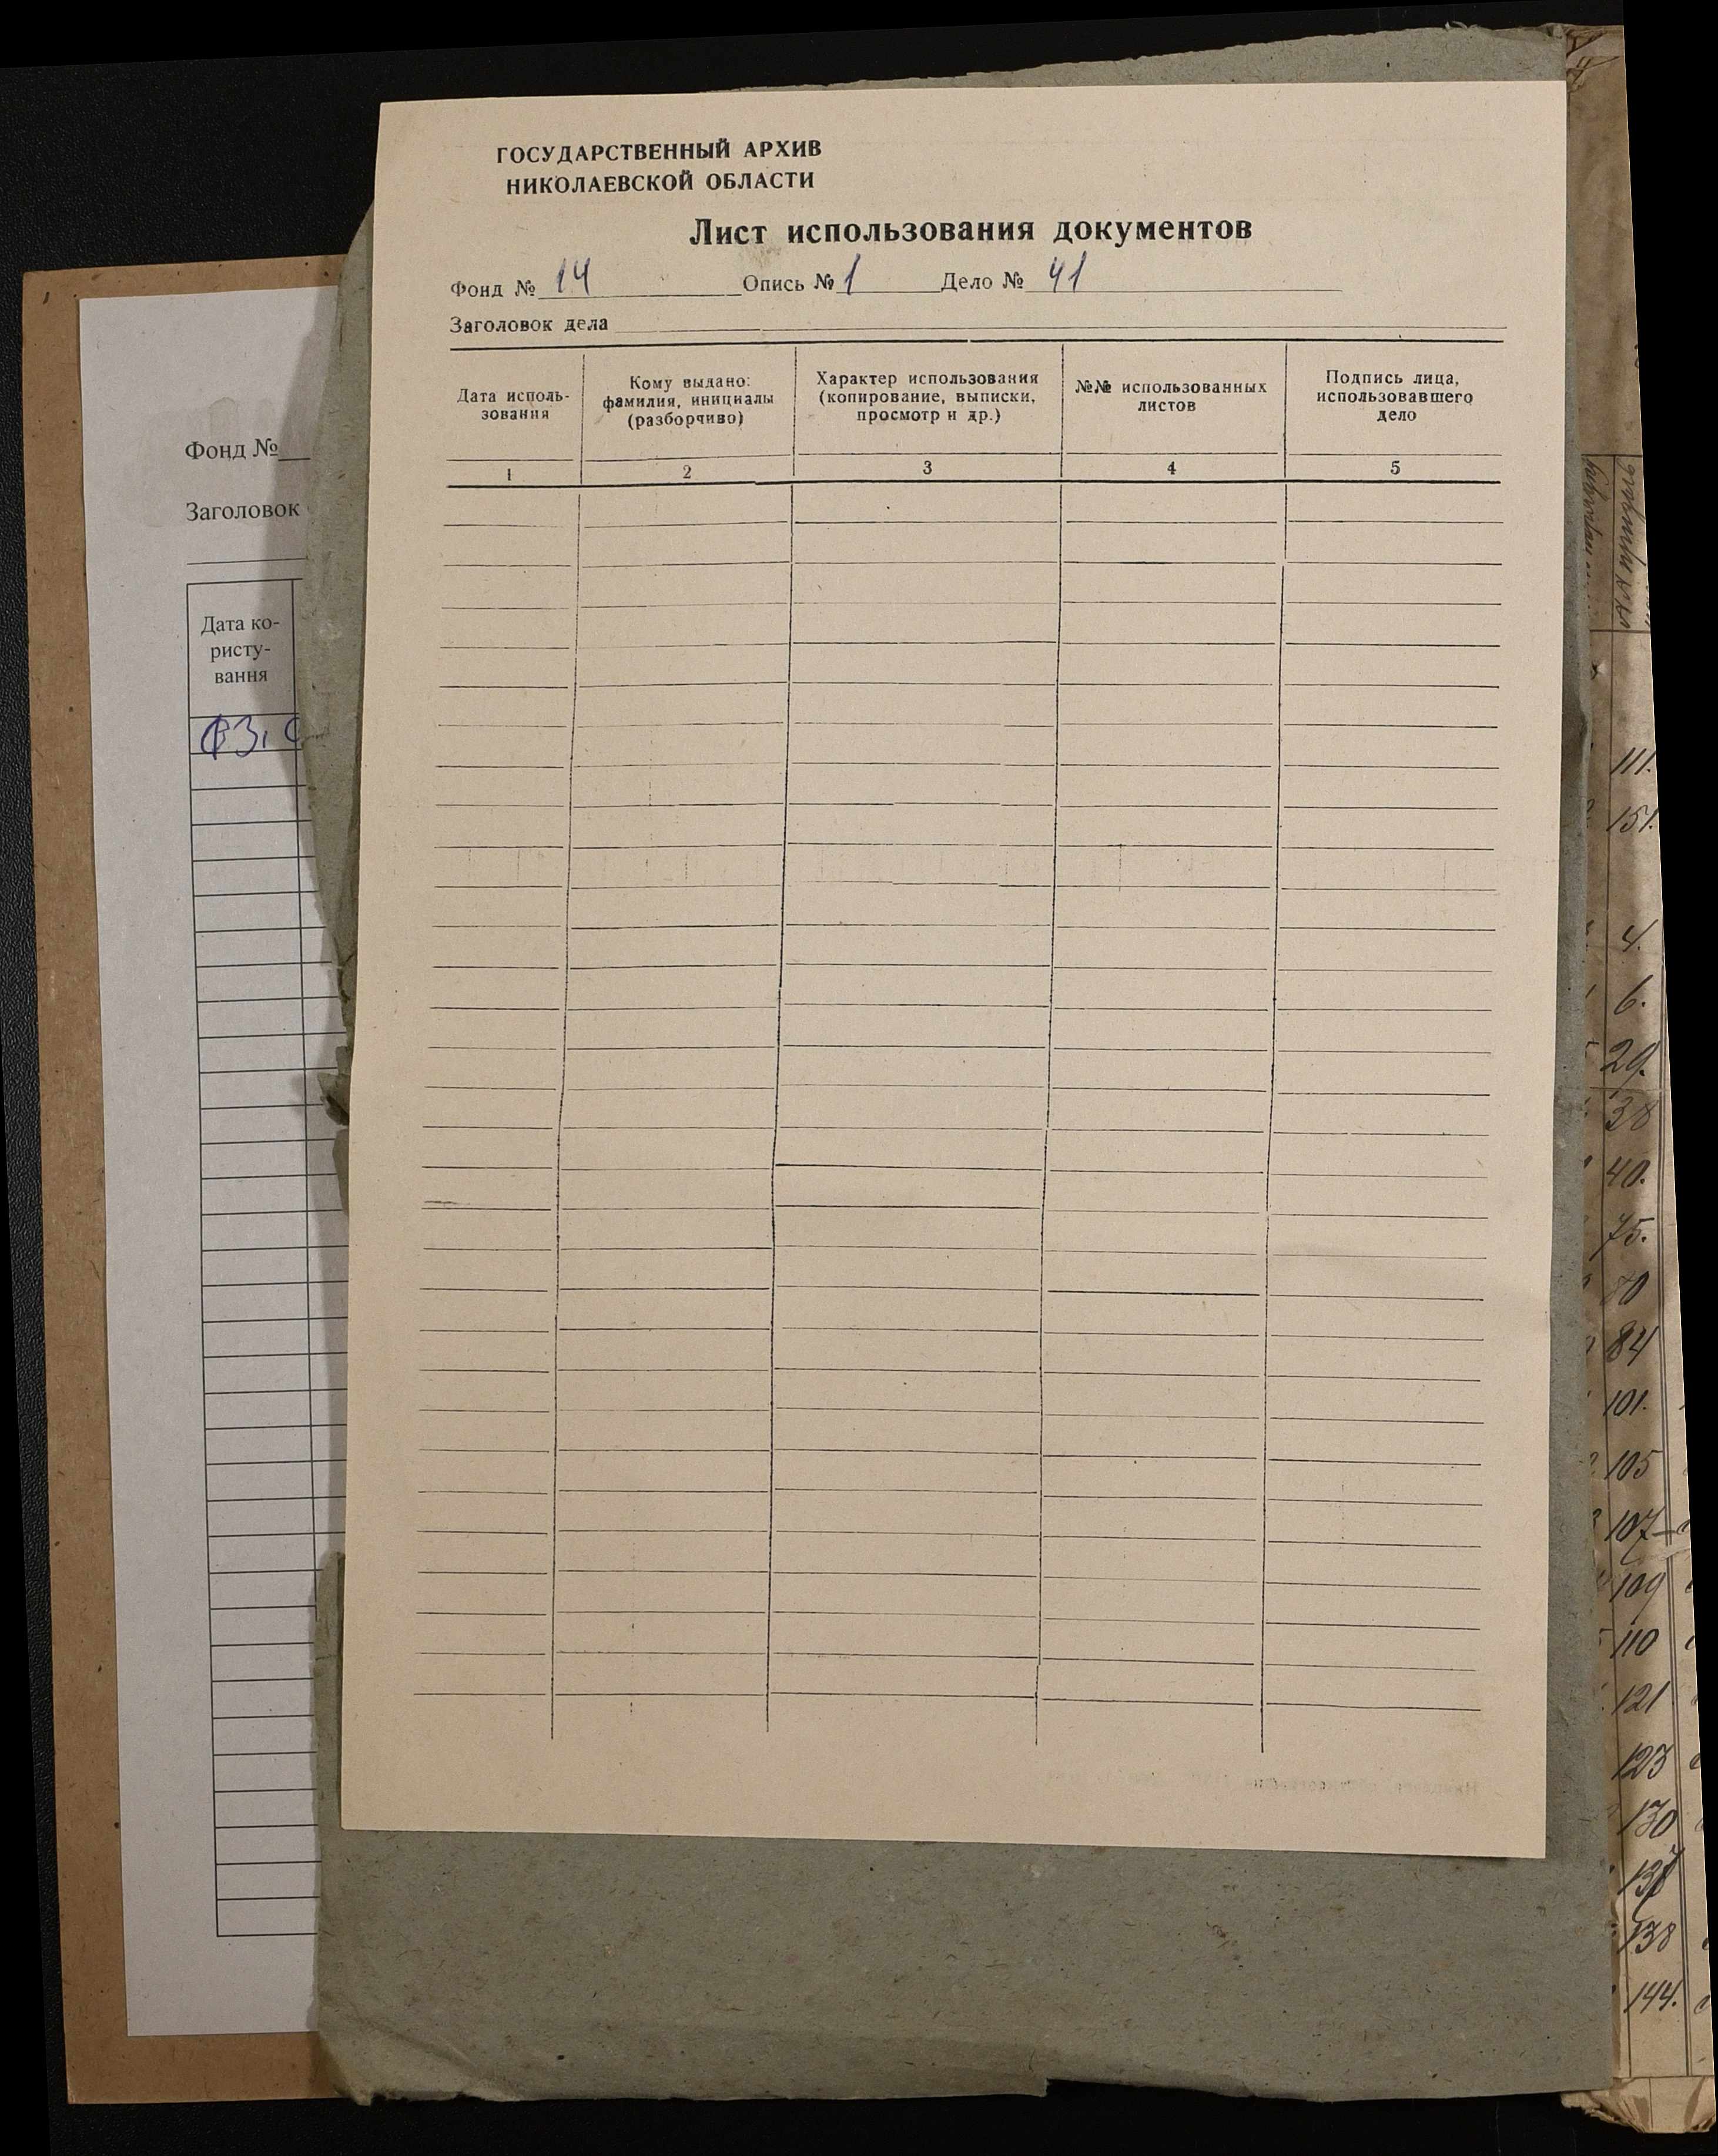 ГОСУДАРСТВЕННЫЙ АРХИВ
НИКОЛАЕВСКОЙ ОБЛАСТИ
Лист использования документов
Фонд № 14 Опись № 1 Дело № 41
Заголовок дела
Дата исполь-
зования
Кому выдано:
фамилия, инициалы
(разборчиво)
Характер использования
(копирование, выписки,
просмотр и др.)
№№ использованных
листов
Подпись лица,
использовавшего
дело
1 2 3 4 5
Фонд №
Заголовок
Дата ко-
ристу-
вання
111.
151.
4.
6.
29.
38
40.
75.
80
84
101.
105
107
109
110
121
123
130
138
144.